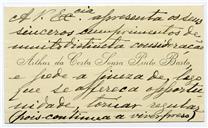 A V. Ex.cia apresenta os seus
sinceros cumprimentos de
muito distincta consideração
Arthur da Costa Sousa Pinto Basto
e pede a fineza de, logo
que se offereça opportu-
nidade, tornar regular
(pois continua a vir expresso)